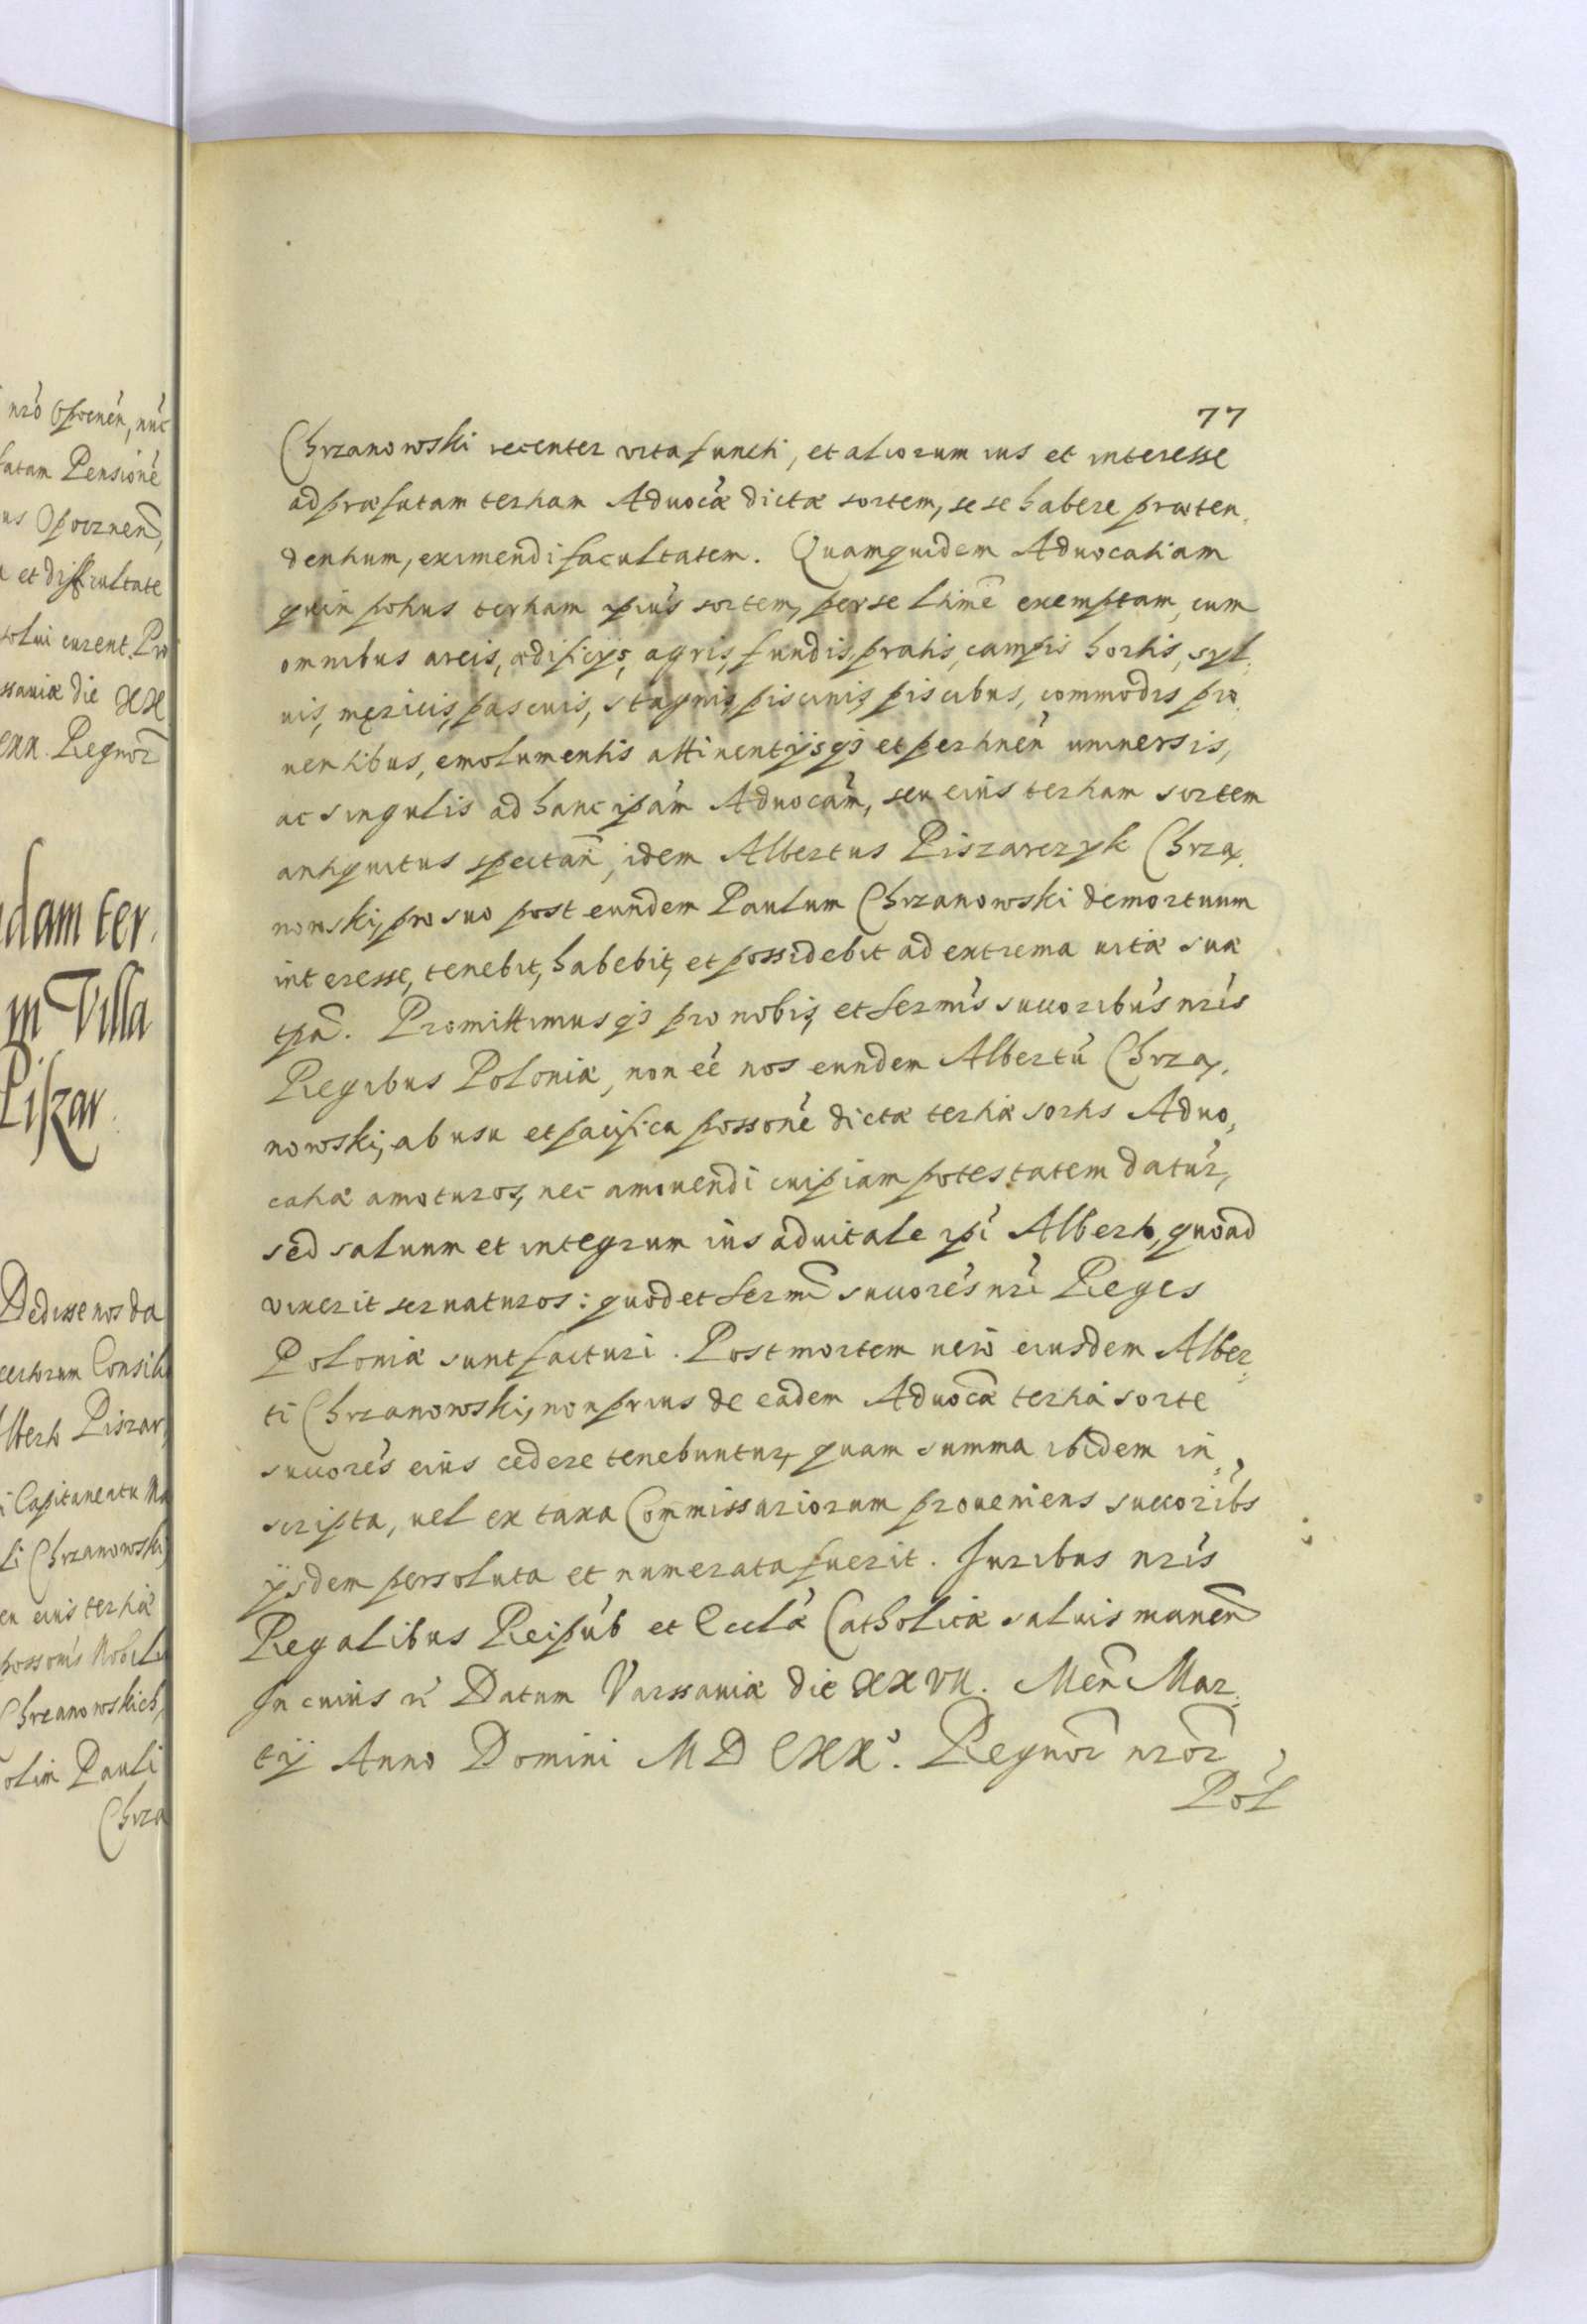 nrõ Opocnen̄, nuc
fatam Pensionē
us Opocznen̄,
et difficultate
solui curent. Pro
ssauiæ die XX
Regnor̄
dam ter,
in Villa
Piszar
Dedisse nos da
certorum Consili
lberto Piszar,
i Capitaneatu
li Chrzanowski,
eu eius tertiæ
possonis Nobili
Chrzanowskich,
olim Pauli
Chrza
77
Chrzanowski recenter vita functi, et aliorum ius et interesse
ad præfatam tertiam Aduocãæ dictæ sortem, se se habere præten,
dentium, eximendi facultatem. Quamquidem Aduocatiam
quin potius tertiam ipiũs sortem, per se ltimē exemptam, cum
omnibus areis, ædificijs, agris, fundis, pratis, campis hortis, syl,
uis, męricis, pascuis, stagnis, piscinis, piscibus, commodis pro,
uentibus, emolumentis attinentijsq̃ et pertinen̄ uniuersis,
ac singulis ad hanc ipãm Aduocãm, seu eius tertiam sortem
antiquitus spectan̄, idem Albertus Piszarczyk Chrza,
nowski, pro suo post eundem Paulum Chrzanowski demortuum
interesse, tenebit, habebit, et possidebit ad extrema uitæ suæ
tpã. Promittimusq̃ pro nobis, et Sermĩs succoribũs nrĩs
Regibus Poloniæ, non eẽ nos eundem Albertũ Chrza,
nowski, ab usu et pacifica possonẽ dictæ tertiæ sortis Aduo,
catiæ amoturos, nec amouendi cuipiam potestatem datur̃,
sed saluum et integrum ius aduitale ipĩ Alberto, quoad
vixerit seruaturos: quod et Sermĩ succorẽs nrĩ Reges
Poloniæ sunt facturi. Post mortem uerò eiusdem Alber,
ti Chrzanowski, non prius de eadem Aduocã tertiâ sorte
succorẽs eius cedere tenebuntur, quam summa ibidem in,
scripta, uel ex taxa Commissariorum proueniens succorib̃s
ijsdem persoluta et numerata fuerit. Juribus nrĩs
Regalibus Reipũb et Ecclã Catholicæ saluis manen̄
In cuius rĩ Datum Varssauiæ die XXVII. Men̄ Mar,
tij Anno Domini MDCXX°. Regnor̄ nror̄
Põl